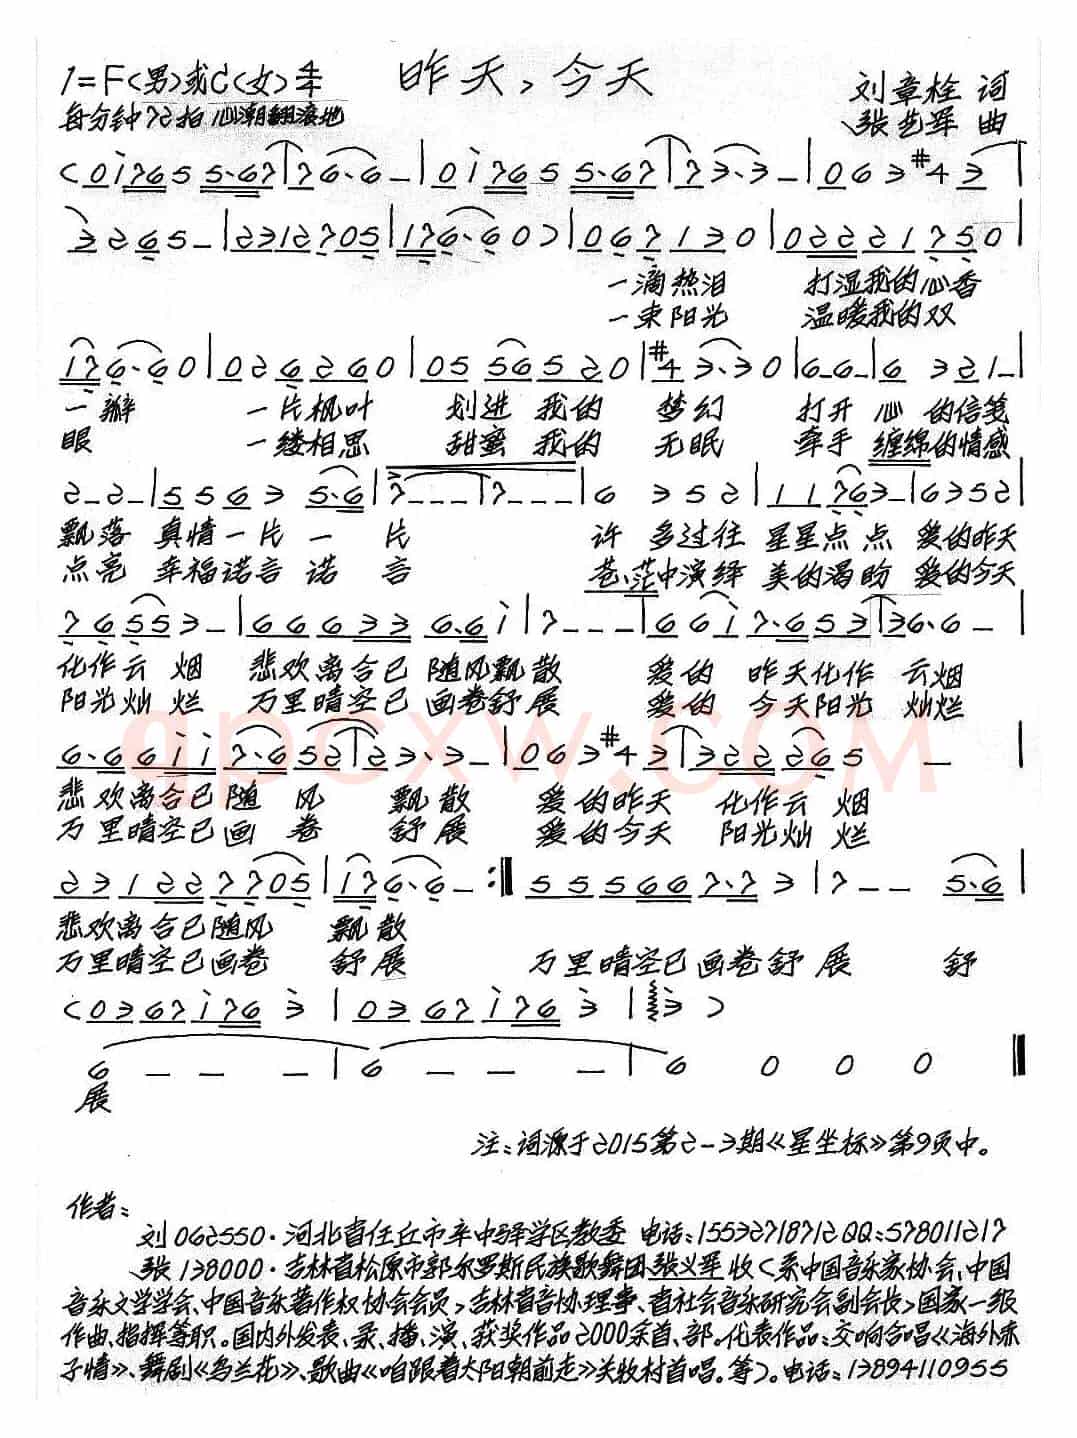 昨天，今天
1=F(男)或C(女) 4/4
每分钟72拍 心潮翻滚地
刘章栓 词
张艺军 曲
(0 i 7 6 5 5·6 7 7 6·6 - | 0 i 7 6 5 5·6 7 7 3·3 - | 0 6 3 #4 3 |
3 2 6 5 - | 2 3 1 2 7 0 5 | 1 7 6·6 0 ) | 0 6 7 1 3 0 | 0 2 2 2 1 7 5 0 |
一滴热泪 打湿我的心香
一束阳光 温暖我的双
1 7 6·6 0 | 0 2 6 2 6 0 | 0 5 5 6 5 2 0 | #4 3·3 0 | 6 - 6 - | 6 3 2 1 - |
一瓣 一片枫叶 划进 我的 梦幻 打开 心 的信笺
眼 一缕相思 甜蜜 我的 无眠 牵手 缠绵的情感
2 - 2 - | 5 5 6 3 5·6 | 7 - - - | 7 - - - | 6 3 5 2 | 1 1 7 6 3 - | 6 3 5 2 |
飘落 真情一片 一 片 许 多过往 星星点 点 爱的昨天
点亮 幸福诺言 诺 言 苍茫中演绎 美的渴盼 爱的今天
7 6 5 5 3 - | 6 6 6 3 3 6·6 i | 7 - - - | 6 6 i 7·6 5 3 3 6·6 - |
化作云 烟 悲欢离合已 随风飘散 爱的 昨天化作 云烟
阳光灿 烂 万里晴空已 画卷舒展 爱的 今天阳光 灿烂
6·6 6 i i 7·6 5 2 2 3·3 - | 0 6 3 #4 3 3 2 2 2 6 5 - |
悲欢离合已随 风 飘散 爱的昨天 化作云 烟
万里晴空已画 卷 舒展 爱的今天 阳光灿 烂
2 3 1 2 2 7 7 0 5 | 1 7 6·6 - :‖ 5 5 5 6 6 7·7 3 | 7 - - 5·6 |
悲欢离合已随风 飘散
万里晴空已画卷 舒展 万里晴空已画卷舒展 舒
(0 3 6 7 i 7 6 3 | 0 3 6 7 i 7 6 3 | 3 )
6 - - - | 6 - - - | 6 0 0 0 ‖
展
注:词源于2015第2-3期《星坐标》第9页中。
作者:
刘 062550·河北省任丘市辛中驿学区教委 电话:15532718712 QQ:578011217
张 138000·吉林省松原市郭尔罗斯民族歌舞团张义军收(系中国音乐家协会、中国
音乐文学学会、中国音乐著作权协会会员,吉林省音协理事、省社会音乐研究会副会长,国家一级
作曲、指挥等职。国内外发表、录、播、演、获奖作品2000余首、部。代表作品:交响合唱《海外赤
子情》、舞剧《乌兰花》、歌曲《咱跟着太阳朝前走》关牧村首唱。等)。电话:13894110955
qpcxw.com